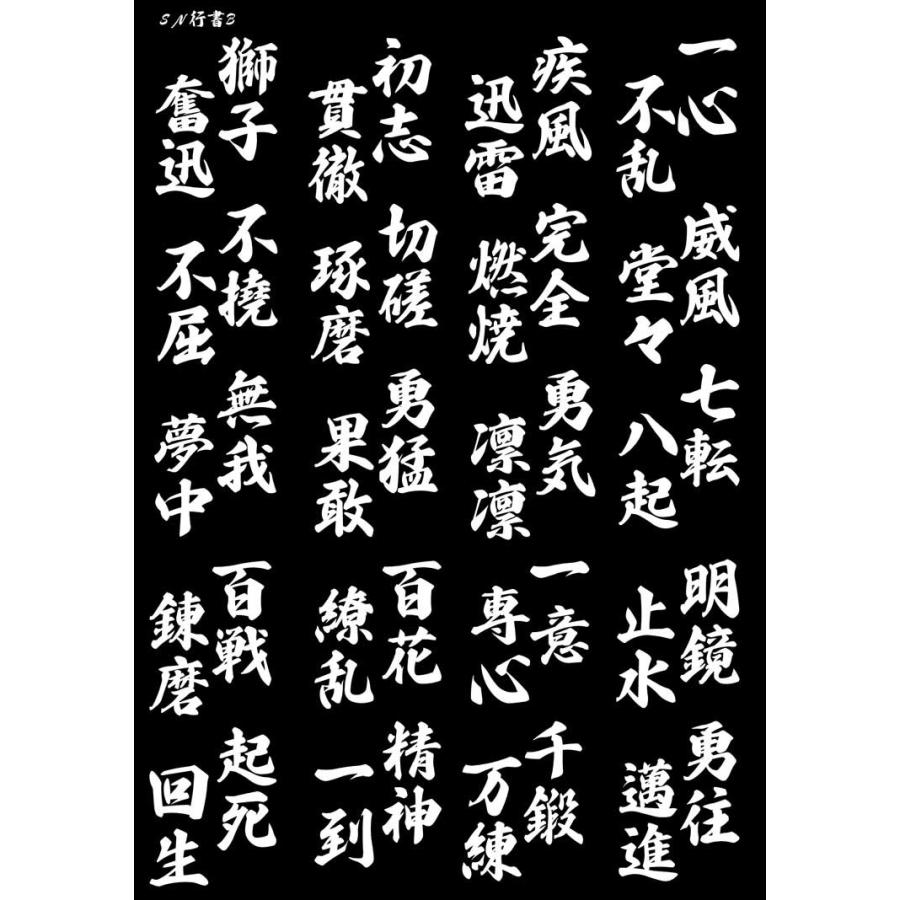 SN行書B
一心
不乱
威風
堂々
七転
八起
明鏡
止水
勇住
邁進
疾風
迅雷
完全
燃焼
勇気
凛凛
一意
専心
千鍛
万練
初志
貫徹
切磋
琢磨
勇猛
果敢
百花
繚乱
精神
一到
獅子
奮迅
不撓
不屈
無我
夢中
百戦
錬磨
起死
回生